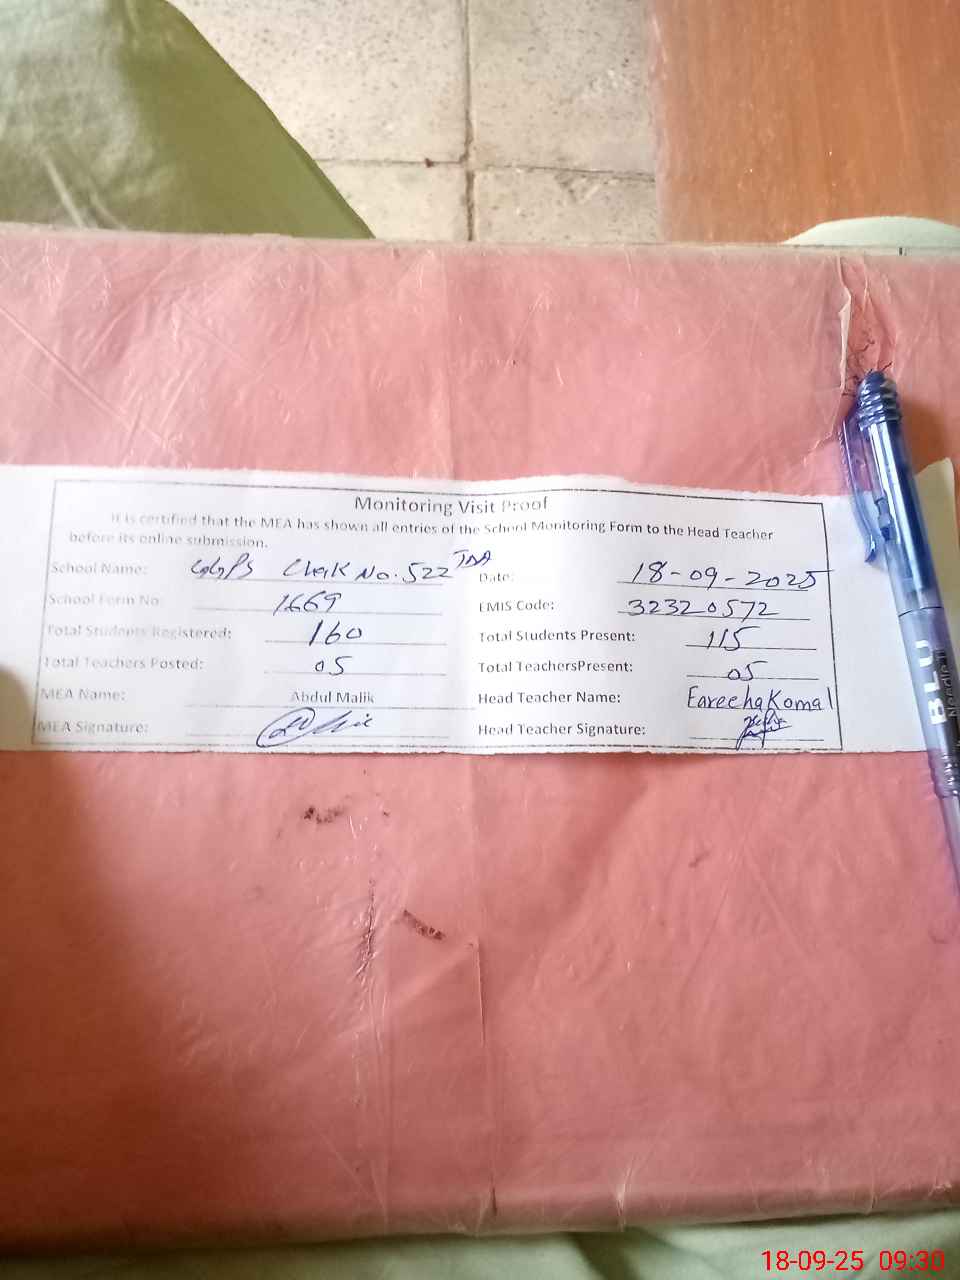 Monitoring Visit Proof
It is certified that the MEA has shown all entries of the School Monitoring Form to the Head Teacher
before its online submission.
School Name: GGPS Chak No. 522 TDA Date: 18-09-2025
School Form No: 1669 EMIS Code: 32320572
Total Students Registered: 160 Total Students Present: 115
Total Teachers Posted: 05 Total TeachersPresent: 05
MEA Name: Abdul Malik Head Teacher Name: Fareeha Komal
MEA Signature: Head Teacher Signature:
BLU
Needle
18-09-25 09:30